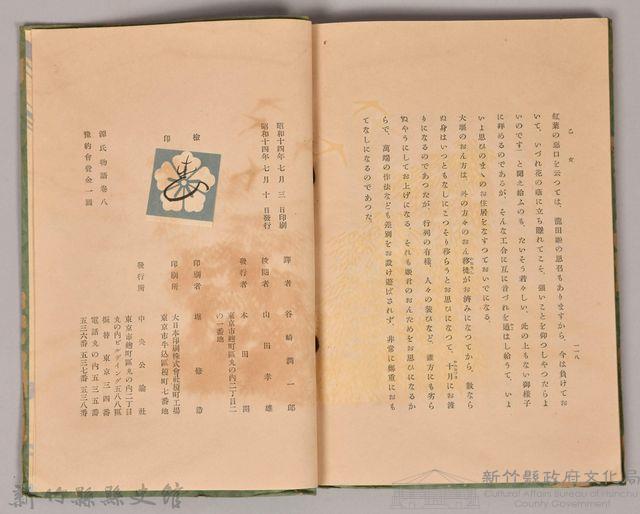 乙女
一一八
紅葉の惡口を云つては、龍田姫の思召もありますから、今は負けてお
いて、いづれ花の蔭に立ち隱れてこそ、强いことを仰つしやつたらよ
いのです」と聞え給ふのも、たいそう若々しい、此の上もない御樣子
に拜めるのであるが、そんな工合に互に音づれを通はし給うて、いよ
いよ思ひのまゝのお住居をなすつておいでになる。
大堰のおん方は、外の方々のおん移徙がお濟みになつてから、數なら
ぬ身はいつともなしにこつそり移らうとお思ひになつて、十月にお渡
りになるのであつたが、行列の有樣、人々の裝ひなど、誰方にも劣ら
ぬやうにしてお上げになる。それも姬君のおんためをお思ひになるか
らで、萬端の作法なども差別をお設け遊ばされず、非常に鄭重におも
てなしになるのであつた。
昭和十四年七月三日印刷
昭和十四年七月十日發行
檢印
源氏物語卷八
豫約會費金一圓
譯者 谷崎潤一郎
校閱者 山田孝雄
發行者 本田
東京市麴町區丸の內二丁目二
の一番地
印刷者 堀修造
東京市牛込區榎町七番地
印刷所 大日本印刷株式會社榎町工場
發行所 中央公論社
東京市麴町區丸の內二丁目
丸の內ビルディング五八八區
振替東京三四番
電話丸の內五三五番
五三六番 五三七番 五三八番
新竹縣縣史館
新竹縣政府文化局
Cultural Affairs Bureau of Hsinchu
County Government